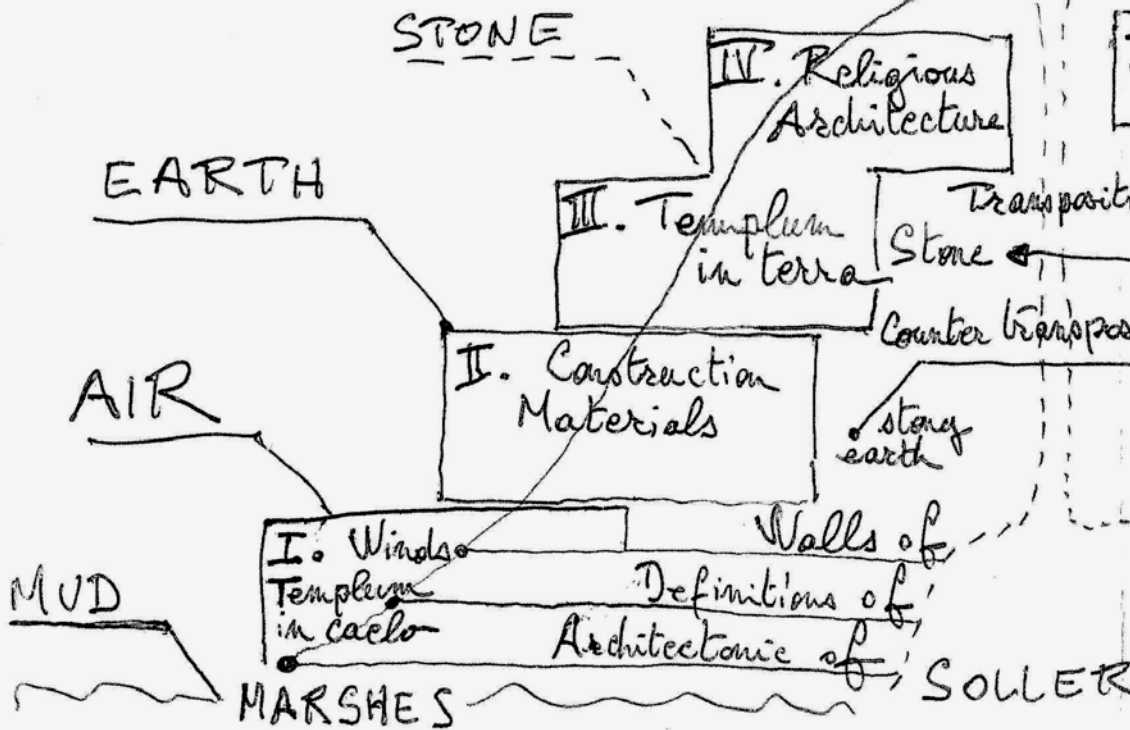 STONE
IV. Religious
Architecture
EARTH
III. Templum
in terra
Stone
II. Construction
Materials
stony
earth
AIR
I. Winds
Templum
in caelo
Walls of
Definitions of
Architectonic of
MUD
MARSHES